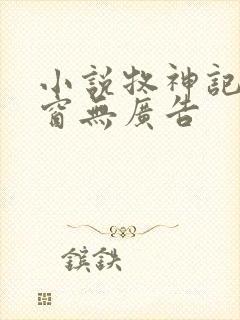 小說牧神記
窗無廣告
鎹鉄